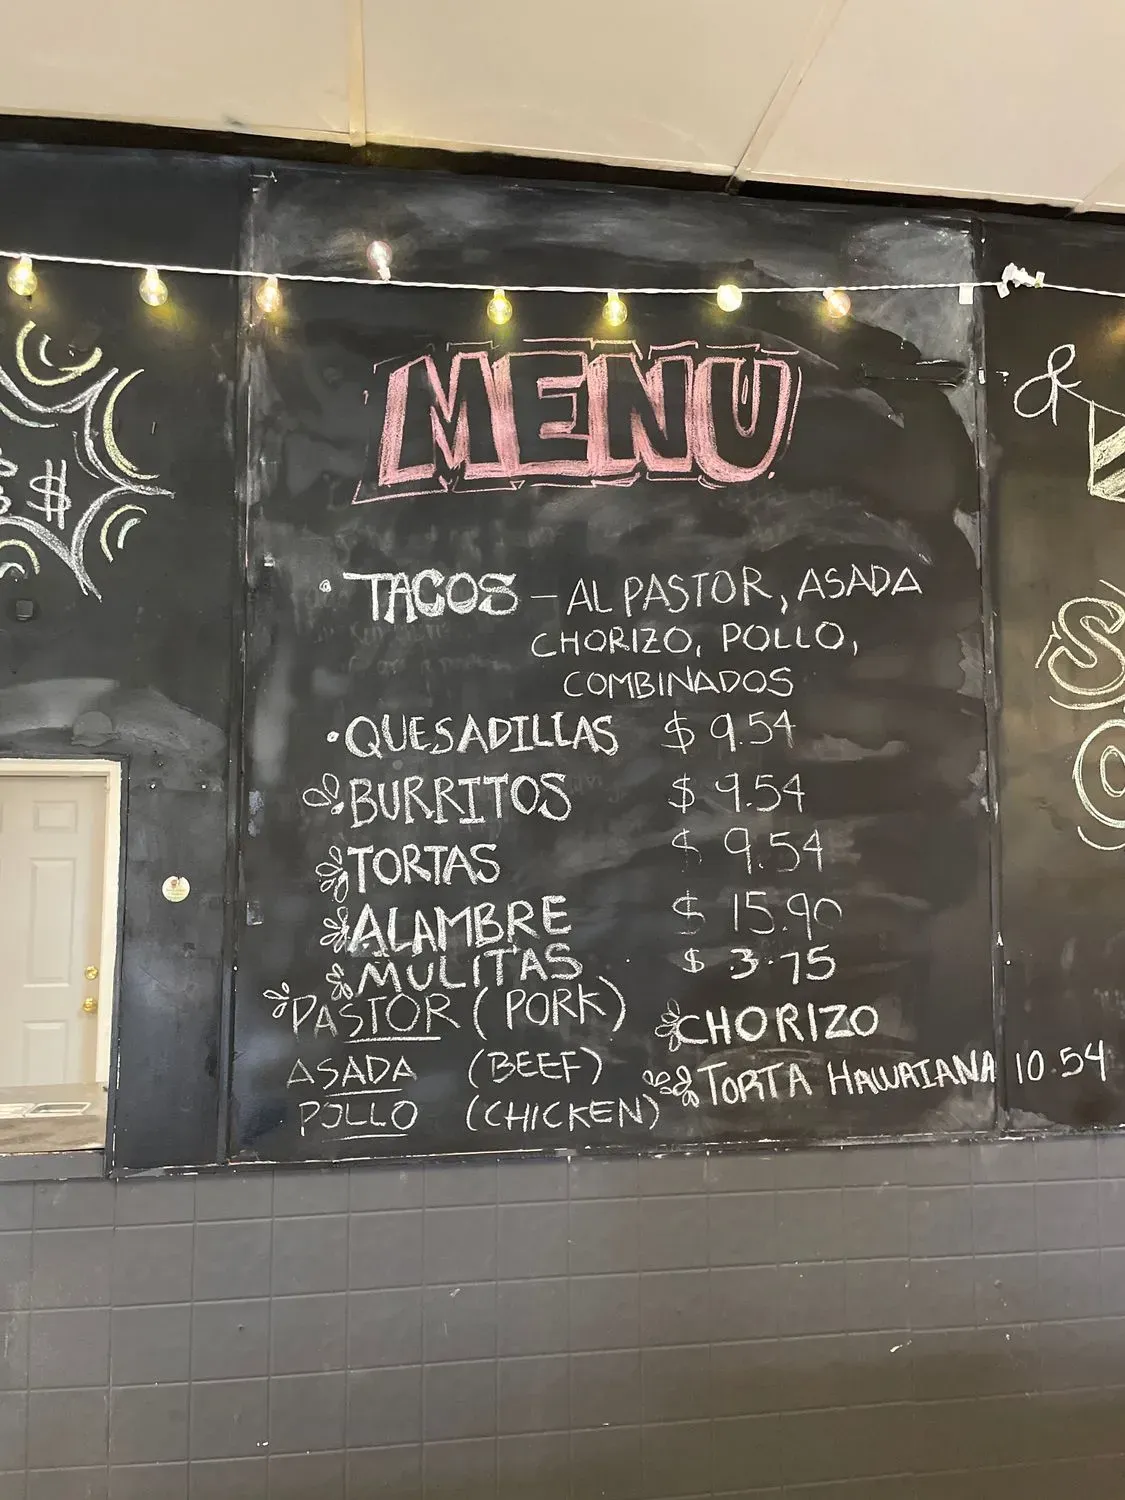 MENU
• TACOS - AL PASTOR, ASADA
CHORIZO, POLLO,
COMBINADOS
• QUESADILLAS $ 9.54
BURRITOS $ 9.54
TORTAS $ 9.54
ALAMBRE $ 15.90
MULITAS $ 3.75
PASTOR (PORK)
CHORIZO
ASADA (BEEF)
TORTA HAWAIANA 10.54
POLLO (CHICKEN)
$
&
S
O